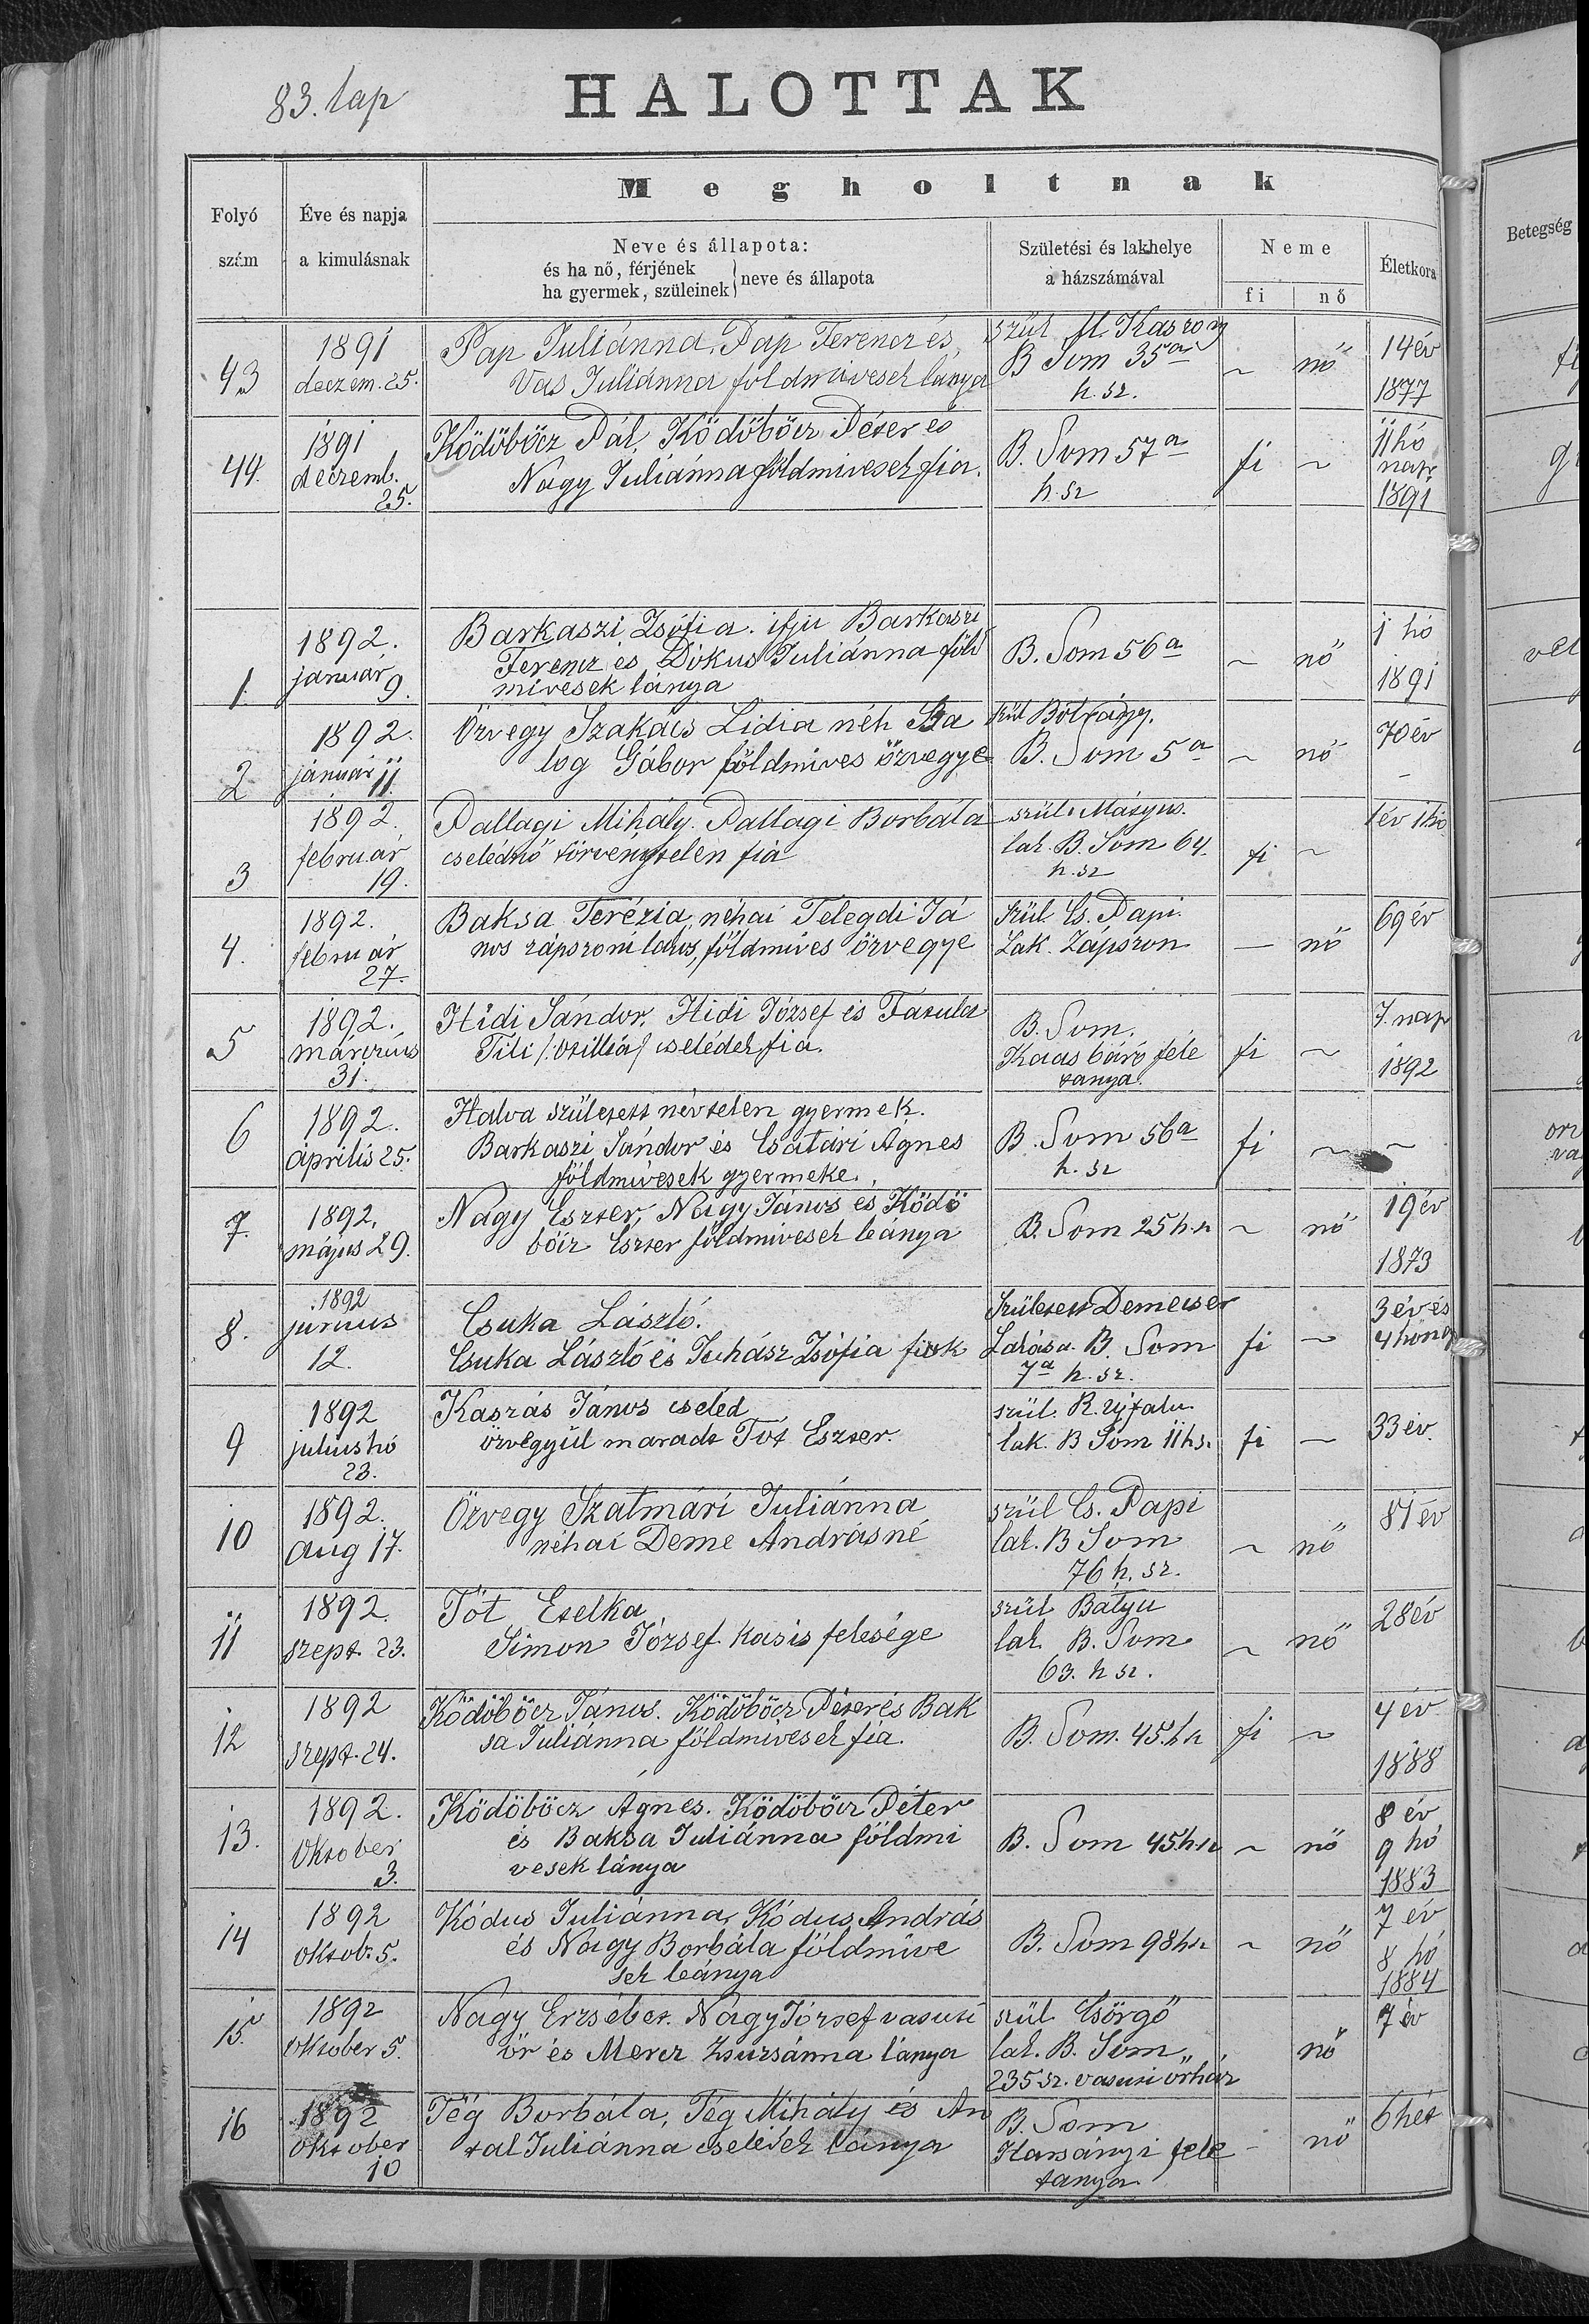 83. lap
HALOTTAK
Megholtnak
Folyó
szám
Éve és napja
a kimulásnak
Neve és állapota:
és ha nő, férjének
ha gyermek, szüleinek
neve és állapota
Születési és lakhelye
a házszámával
Neme
fi
nő
Életkora
Betegség
43
1891
deczem. 25.
Pap Juliánna. Pap Ferencz és
Vas Juliánna földmivesek lánya
szül M. Kaszony
B Som 35a
h. sz.
~
nő
14 év
1877
44.
1891
deczemb.
25.
Ködöböcz Pál, Ködöböcz Péter és
Nagy Juliánna földmivesek fia.
B. Som 57a
h. sz
fi
~
11 hó
nap.
1891
1.
1892.
január
9.
Barkaszi Zsófia. ifju Barkaszi
Ferencz és Dókus Juliánna föld
mivesek lánya
B. Som 56a
~
nő
1 hó
1891
2
1892.
január 11.
Özvegy Szakács Lidia néh Ba
log Gábor földmives özvegye
szül Bótrágy.
B. Som 5a
~
nő
70 év
3
1892.
február
19.
Pallagi Mihály. Pallagi Borbála
cselédnő törvénytelen fia
szül. Mátyus.
lak. B. Som 64.
h. sz
fi
~
1 év 1 hó
4.
1892.
február
27.
Baksa Terézia, néhai Telegdi Já
nos zápszoni lakos, földmives özvegye
Szül Cs. Papi.
Lak. Zápszon
—
nő
69 év
5
1892.
márczius
31.
Hidi Sándor, Hidi József és Fatula
Tili /:otillia/ cselédek fia.
B. Som.
Kaas báró féle
tanya.
fi
~
7. nap
1892
6
1892.
április 25.
Halva született névtelen gyermek.
Barkaszi Sándor és Csatári Ágnes
földmivesek gyermeke.
B. Som 56a
h. sz
fi
~
~
7.
1892.
május 29.
Nagy Eszter, Nagy János és Ködö
böcz Eszter földmivesek leánya
B. Som 25 h. sz
~
nő
19 év
1873
8.
1892
junius
12.
Csuka László.
Csuka László és Juhász Zsófia fiok
Született Demecser
Lakása. B. Som
7a h. sz.
fi
~
3 év és
4 hónap
9
1892
julius hó
23.
Kaszás János cseléd
özvegyül maradt Tót Eszter.
szül. R. ujfalu
lak. B Som 11 hs.
fi
—
33 év.
10
1892.
aug 17.
Özvegy Szatmári Juliánna
néhai Deme Andrásné
szül Cs. Papi
lak. B Som
76 h. sz.
~
nő
81 év
11
1892.
szept. 23.
Tót Etelka
Simon József kasis felesége
szül Bátyu
lak. B. Som
63. h sz.
~
nő
28 év
12
1892
szept. 24.
Ködöböcz János. Ködöböcz Péter és Bak
sa Juliánna földmivesek fia.
B. Som. 45. h sz
fi
~
4 év
1888
13.
1892.
Oktober
3.
Ködöböcz Ágnes. Ködöböcz Péter
és Baksa Juliánna földmi
vesek lánya
B. Som 45 h sz
~
nő
8 év
9 hó
1883
14
1892
oktob. 5.
Kódus Juliánna, Kódus András
és Nagy Borbála földmive
sek leánya
B. Som 98 h sz
~
nő
7 év
8 hó
1884
15.
1892
oktober 5.
Nagy Erzsébet. Nagy József vasuti
őr és Mercz Zsuzsánna lánya
szül Csörgő
lak. B. Som
235 sz. vasuti őrház
nő
7 év
16
1892
oktober
10
Tég Borbála, Tég Mihály és An
tal Juliánna cselédek lánya
B. Som
Harsányi féle
tanya
-
nő
6 hét